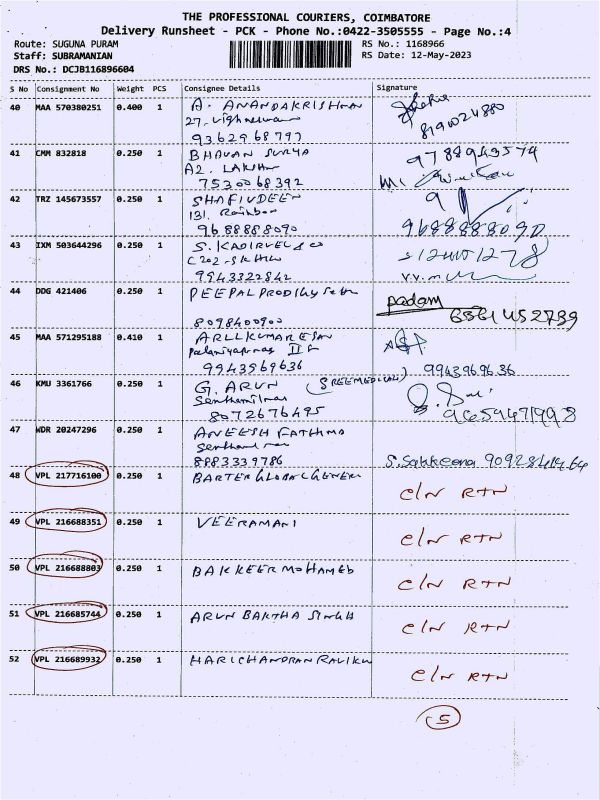 THE PROFESSIONAL COURIERS, COIMBATORE
Delivery Runsheet - PCK - Phone No.:0422-3505555 - Page No.:4
Route: SUGUNA PURAM RS No.: 1168966
Staff: SUBRAMANIAN RS Date: 12-May-2023
DRS No.: DCJB116896604
S No Consignment No Weight PCS Consignee Details Signature
40 MAA 570380251 0.400 1 A. ANANDAKRISHNAN
27.
9362968797 8190024880
41 CMM 832818 0.250 1 BHAVAN SURYA 9788943574
A2. LAKSHM
7530068392
42 TRZ 145673557 0.250 1 SHAFIUDEEN
131. Rainbow
9688888090 9688888090
43 IXM 503644296 0.250 1 S. KADIRVEL & CO
C202-SKHILL
9943322842
44 DDG 421406 0.250 1 DEEPAL PRODIGY padam
8098400900
45 MAA 571295188 0.410 1 ARLLKUMARESAN
II
9943969636 9943969636
46 KMU 3361766 0.250 1 G. ARUN (SREEMEDICAL)
Senthamilnas
8072676495 9659471998
47 WDR 20247296 0.250 1 ANEESH FATHMA
8883339786 S. Sakkeena
48 VPL 217716100 0.250 1 BARTER GLOBAL GENERL C/N RTN
49 VPL 216688351 0.250 1 VEERAMANI C/N RTN
50 VPL 216688803 0.250 1 BAKKEER MOHAMED C/N RTN
51 VPL 216685744 0.250 1 ARUN BAKTHA SINGH C/N RTN
52 VPL 216689932 0.250 1 HARICHANDRAN RAVIKU C/N RTN
5